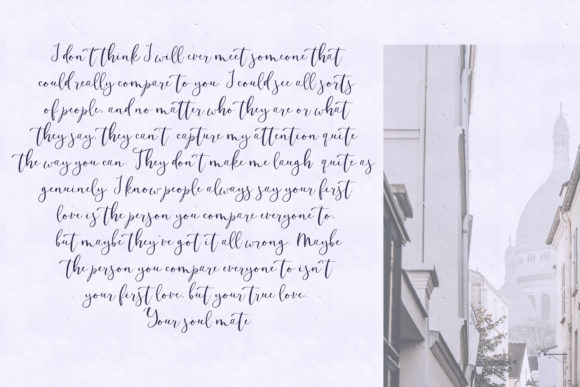 I don't think I will ever meet someone that
could really compare to you. I could see all sorts
of people, and no matter who they are or what
they say, they can't capture my attention quite
the way you can. They don't make me laugh quite as
genuinely. I know people always say your first
love is the person you compare everyone to,
but maybe they've got it all wrong. Maybe
the person you compare everyone to isn't
your first love, but your true love.
Your soul mate